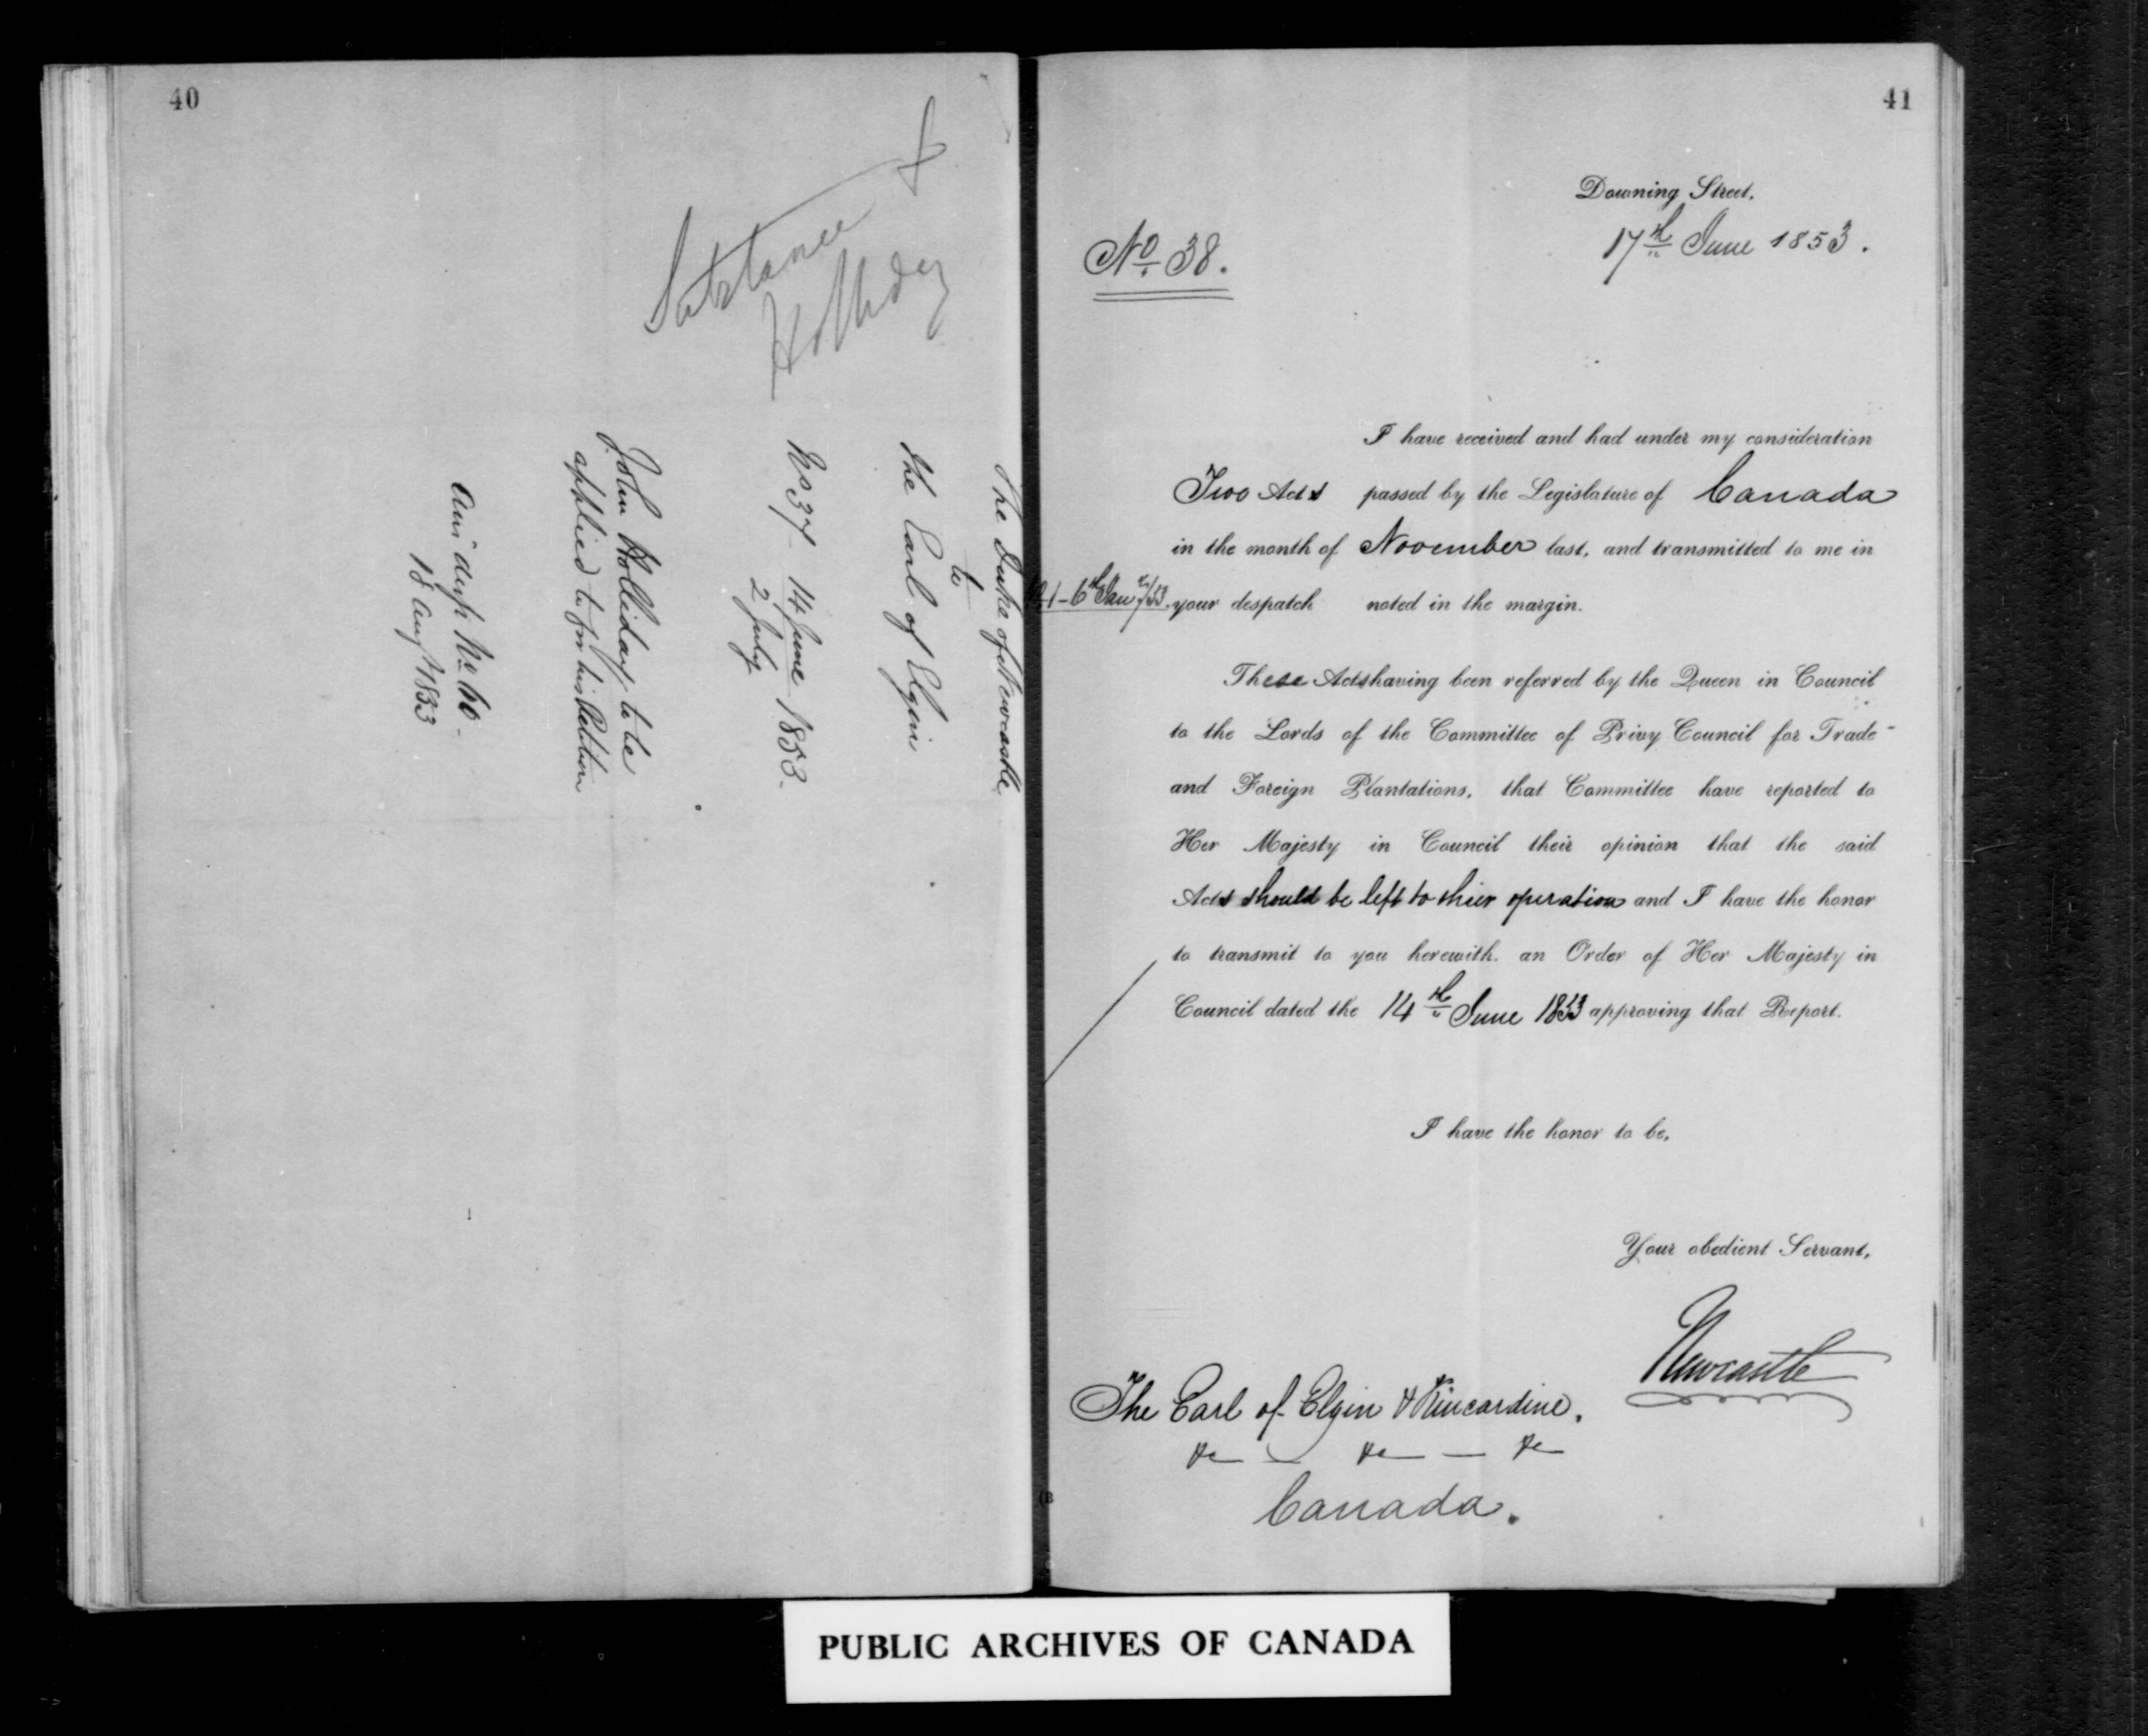 40
Substance &
Holliday
The Duke of Newcastle
to
The Earl of Elgin
No 37 14 June 1853.
2 July
John Holliday to be
applied to for his Petition
Ansd desp No 60.
18 Augt 1853
41
Downing Street,
17th June 1853.
No 38.
I have received and had under my consideration
Two Acts passed by the Legislature of Canada
in the month of November last, and transmitted to me in
1 - 6th Jany/53. your despatch noted in the margin.
These Acts having been referred by the Queen in Council
to the Lords of the Committee of Privy Council for Trade
and Foreign Plantations, that Committee have reported to
Her Majesty in Council their opinion that the said
Acts should be left to their operation and I have the honor
to transmit to you herewith an Order of Her Majesty in
Council dated the 14th June 1853 approving that Report.
I have the honor to be,
Your obedient Servant,
Newcastle
The Earl of Elgin & Kincardine.
&c — &c — &c
Canada.
PUBLIC ARCHIVES OF CANADA